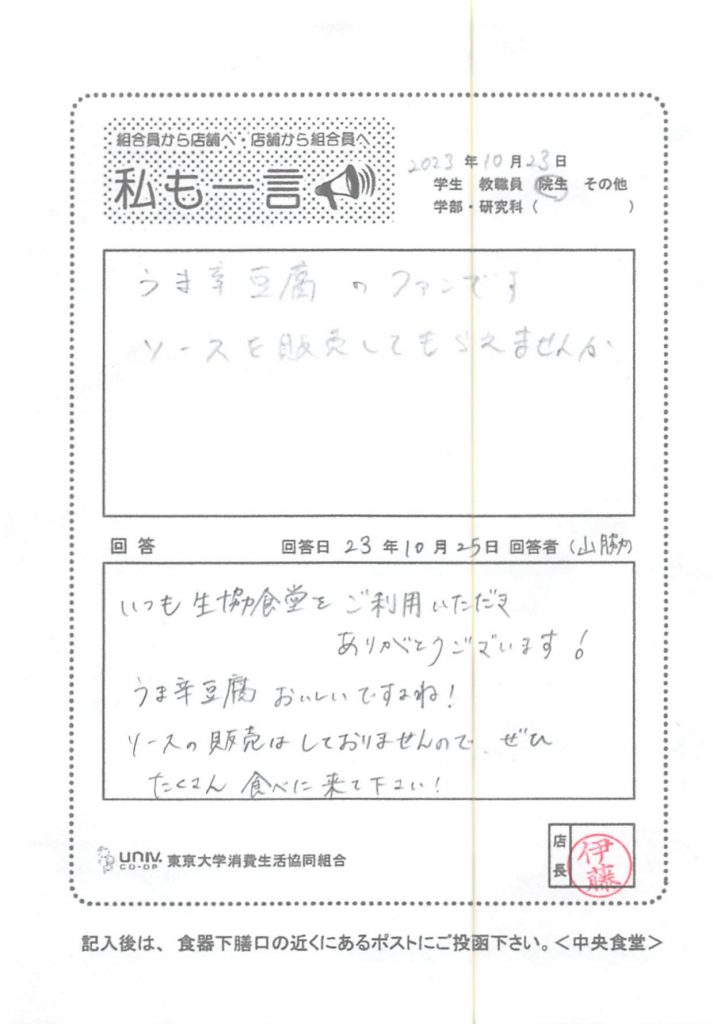 組合員から店舗へ・店舗から組合員へ
私も一言
2023年10月23日
学生 教職員 院生 その他
学部・研究科( )
うま辛豆腐のファンです
ソースを販売してもらえませんか
回答 回答日 23年10月25日 回答者(山脇)
いつも生協食堂をご利用いただき
ありがとうございます!
うま辛豆腐おいしいですよね!
ソースの販売はしておりませんので、ぜひ
たくさん食べに来て下さい!
UNIV. CO-OP 東京大学消費生活協同組合
店長 伊藤
記入後は、食器下膳口の近くにあるポストにご投函下さい。<中央食堂>